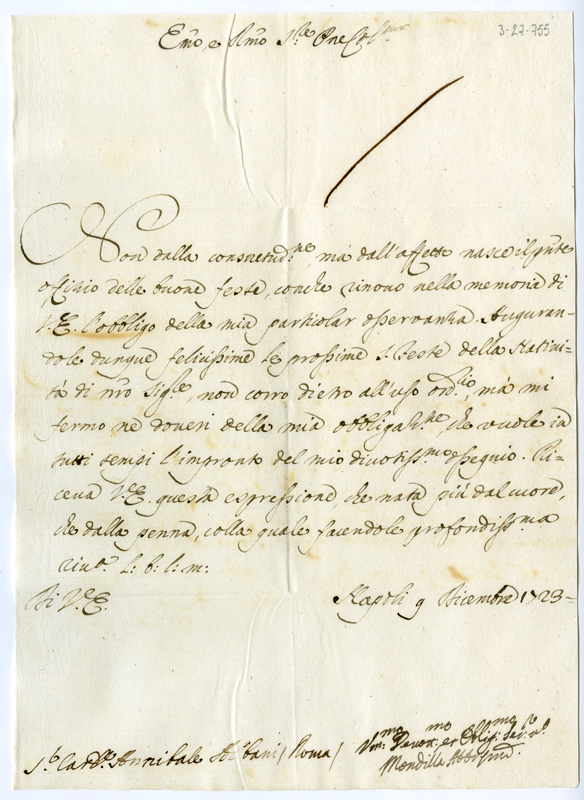 3-27-755
Emo, e Rmo S.re Pne Col.mo
Non dalla consuetud.ne, má dall'affetto nasce il pnte
offitio delle buone feste, con che rinovo nella memoria di
V.E. l'obbligo della mia particolar osservanza. Auguran-
dole dunque felicissime le prossime S. Feste della Nativi-
tá di nro Sig.re, non corro dietro all'uso ord.rio, má mi
fermo né doveri della mia obbligat.ne, che vuole in
tutti tempi l'impronto del mio divotiss.mo ossequio. Ri-
ceva V.E. questa espressione, che nata più dal cuore,
che dalla penna, colla quale facendole profondiss.ma
riv.a L: b: l: m:
Di V.E.
Napoli 9 Dicembre 1723=
S.r Card.le Annibale Albani / Roma /
Um.mo Devot.mo et Oblig.mo Ser.re
Mondilla Orsini